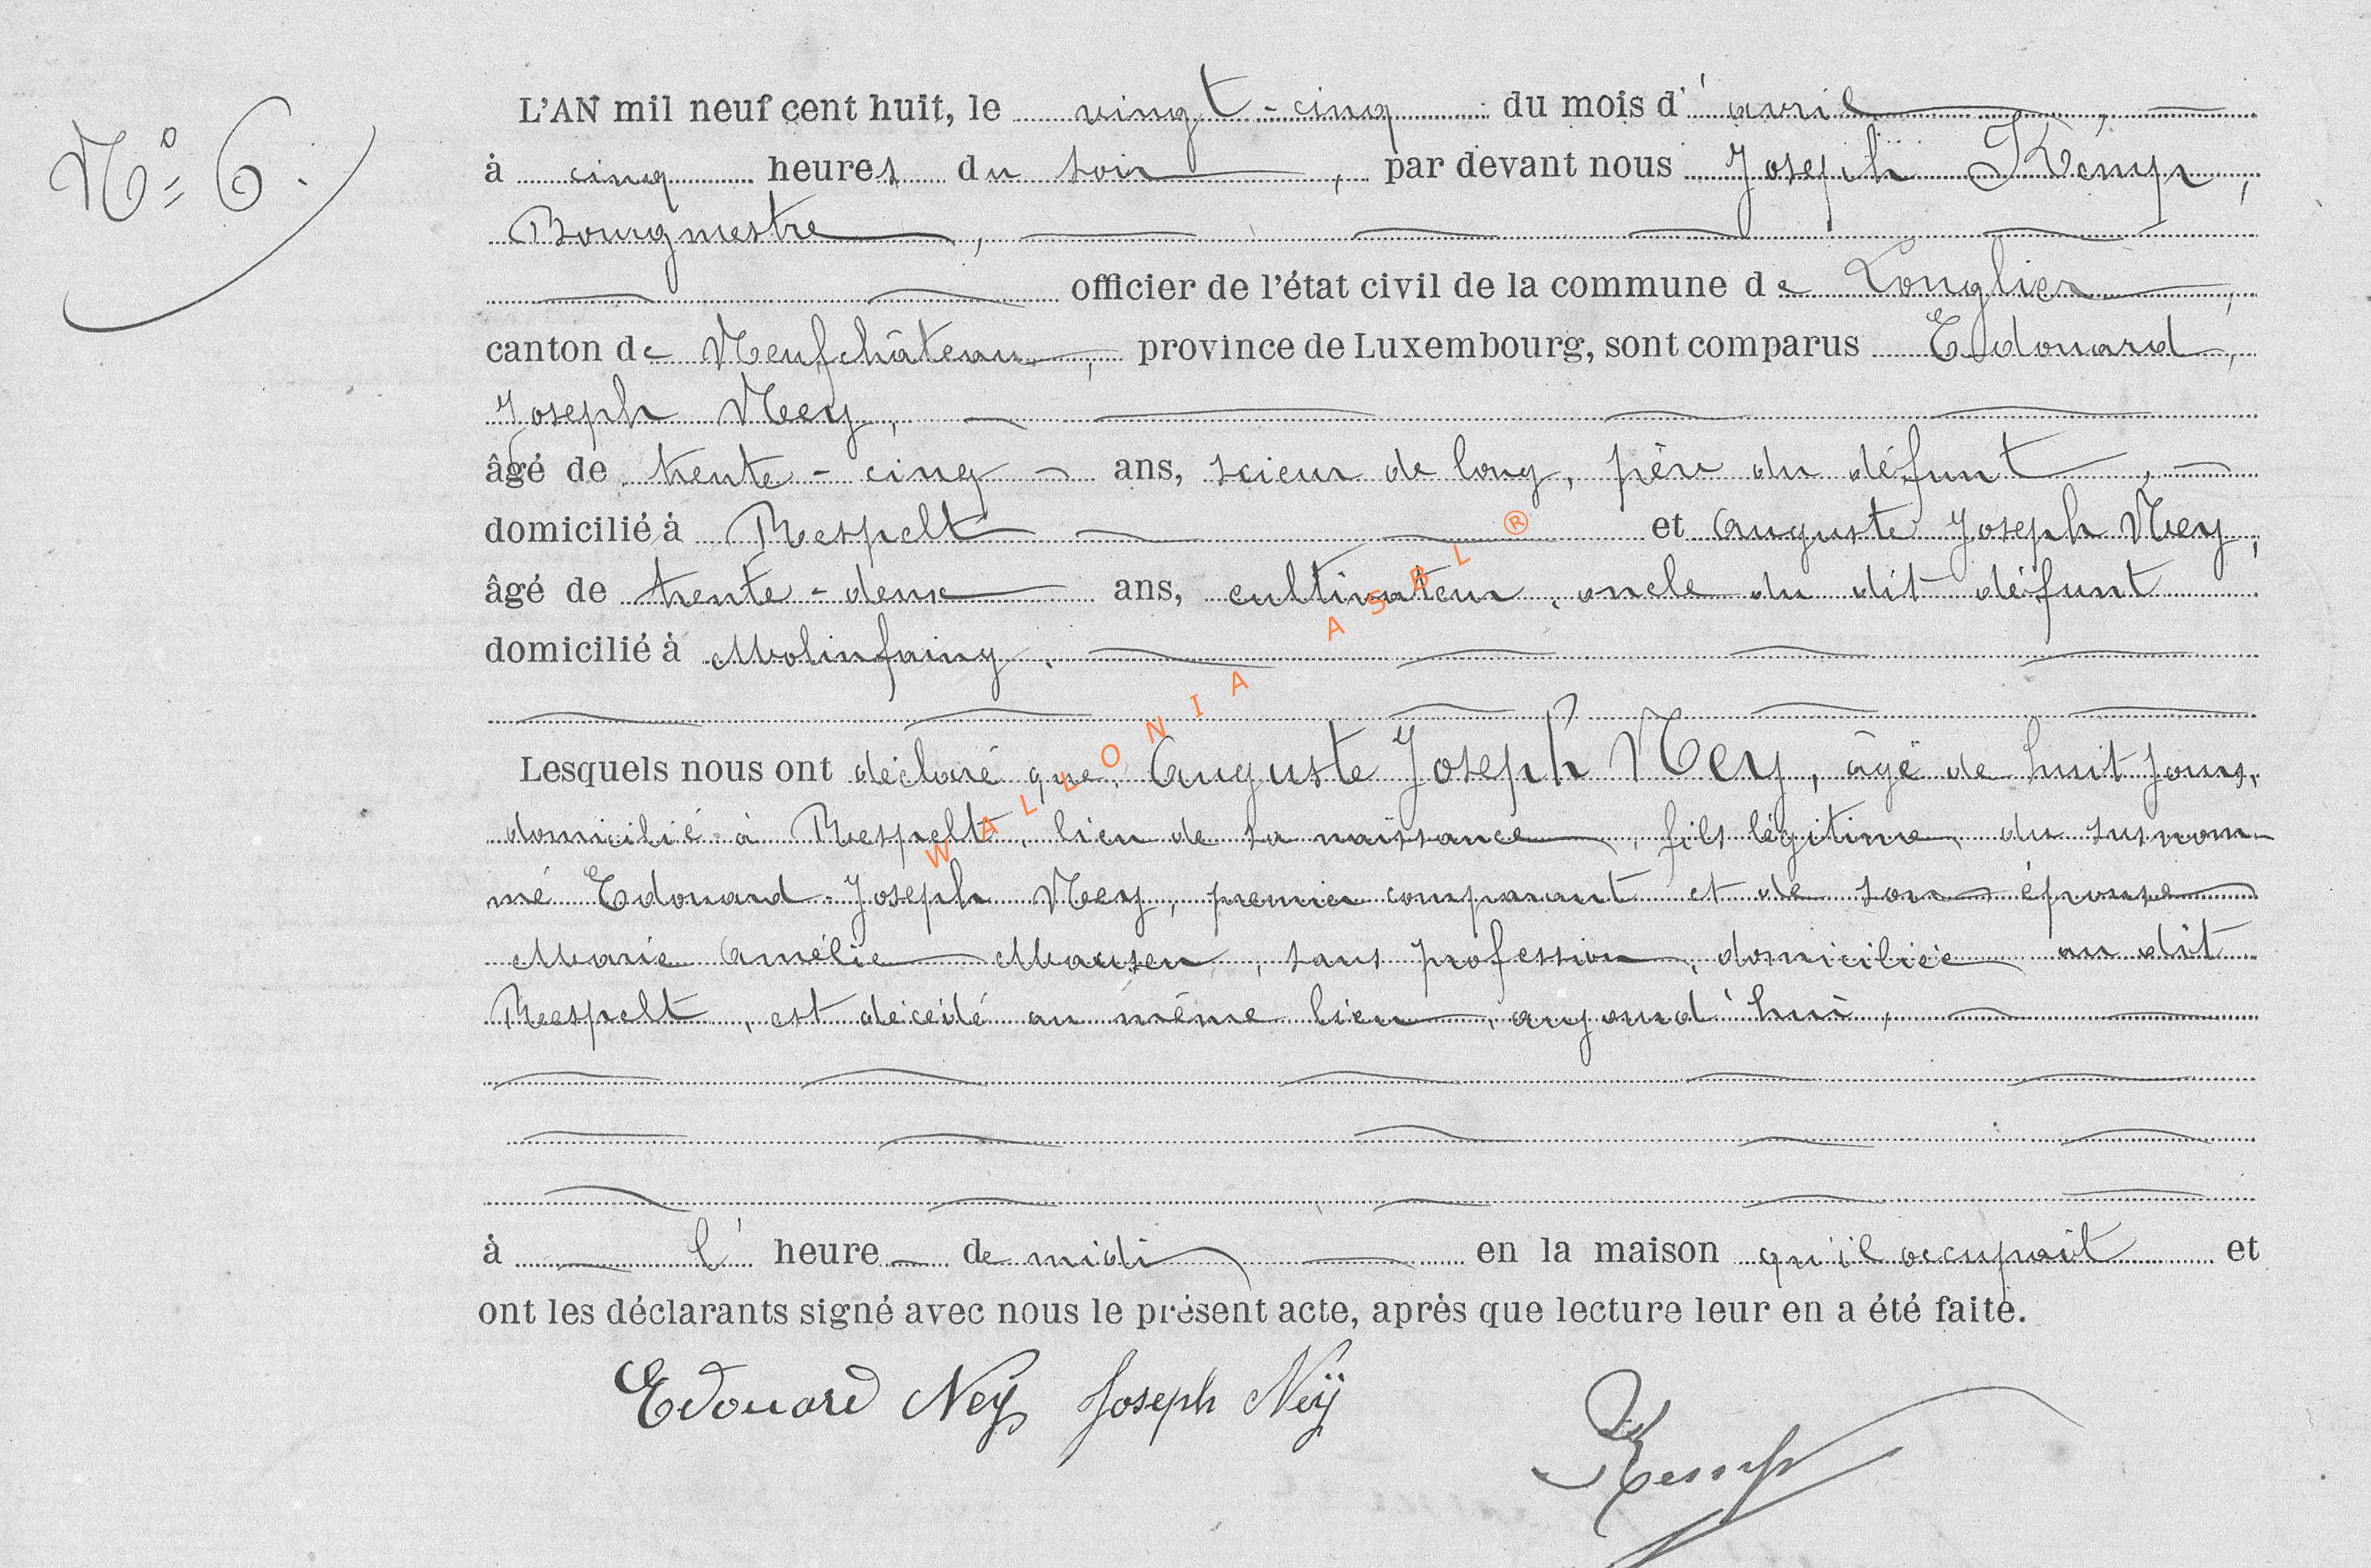 N° 6.
L'AN mil neuf cent huit, le vingt-cinq du mois d'avril,
à cinq heures du soir, par devant nous Joseph Kemp,
Bourgmestre,
officier de l'état civil de la commune de Longlier,
canton de Neufchâteau, province de Luxembourg, sont comparus Edouard,
Joseph Ney,
âgé de trente-cinq ans, scieur de long, père du défunt,
domicilié à Respelt et Auguste Joseph Ney,
âgé de trente-deux ans, cultivateur, oncle du dit défunt
domicilié à Molinfaing.
Lesquels nous ont déclaré que Auguste Joseph Ney, âgé de huit jours,
domicilié à Respelt, lieu de sa naissance, fils légitime du susnom-
mé Edouard-Joseph Ney, premier comparant et de son épouse
Marie Amélie, sans profession, domiciliée au dit
Respelt, est décédé au même lieu, aujourd'hui,
à l'heure de midi en la maison qu'il occupait et
ont les déclarants signé avec nous le présent acte, après que lecture leur en a été faite.
Edouard Ney Joseph Neÿ
Kemp
WALLONIA ASBL ®